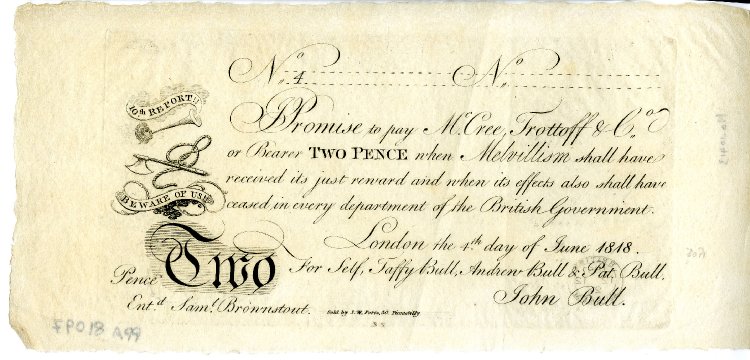 No. 4 No.
10th REPORT!!
I Promise to pay McCree, Trottoff & Co.
or Bearer TWO PENCE when Melvillism shall have
BEWARE OF US!!
received its just reward and when its effects also shall have
ceased in every department of the British Government.
London the 4th day of June 1818.
Pence Two For Self, Taffy Bull, Andrew Bull & Pat. Bull.
John Bull.
Entd. Saml. Brownstout. Sold by S.W. Fores, 50, Piccadilly
FPO18 A99